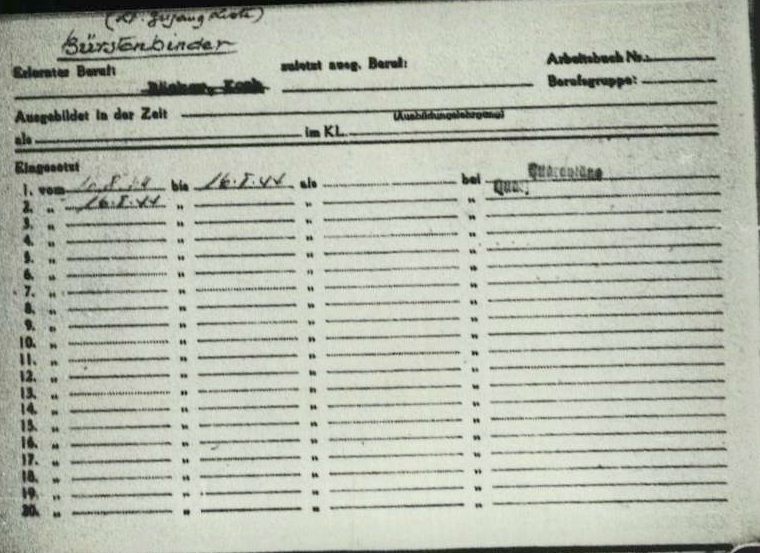 (lt. Zugang Liste)
Bürstenbinder
Erlernter Beruf: zuletzt ausg. Beruf: Arbeitsbuch Nr.:
Bäcker, Koch Berufsgruppe:
Ausgebildet in der Zeit (Ausbildungslehrgang)
als im KL.
Eingesetzt
1. vom bis 16.8.44 als bei Quarantäne
2. " 16.8.44 " " " Quar.
3. " " " "
4. " " " "
5. " " " "
6. " " " "
7. " " " "
8. " " " "
9. " " " "
10. " " " "
11. " " " "
12. " " " "
13. " " " "
14. " " " "
15. " " " "
16. " " " "
17. " " " "
18. " " " "
19. " " " "
20. " " " "